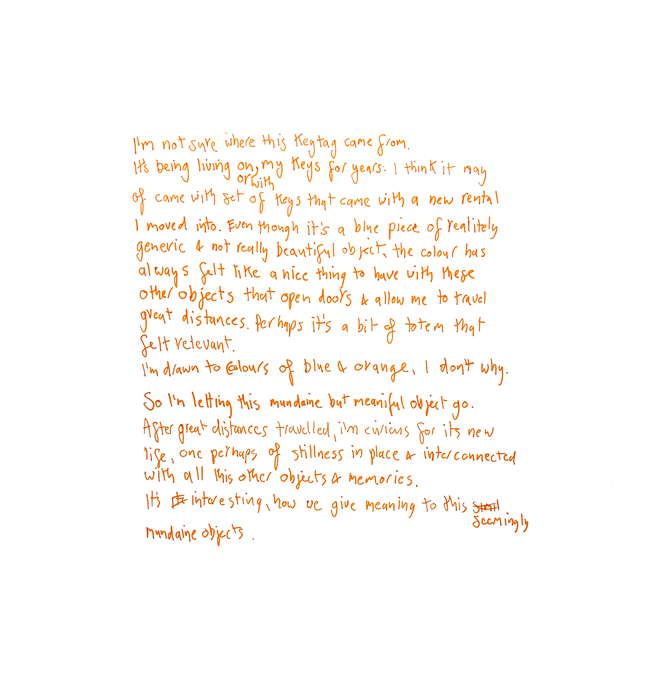 I'm not sure where this Keytag came from.
It's being living on, my keys for years. I think it may
or with
of came with set of keys that came with a new rental
I moved into. Even though it's a blue piece of realitely
generic & not really beautiful object, the colour has
always felt like a nice thing to have with these
other objects that open doors & allow me to travel
great distances. Perhaps it's a bit of totem that
felt relevant.
I'm drawn to colours of blue & orange, I don't why.
So I'm letting this mundaine but meaniful object go.
After great distances travelled, i'm curious for its new
life, one perhaps of stillness in place & interconnected
with all this other objects & memories.
It's interesting, how we give meaning to this
seemingly
mundaine objects.